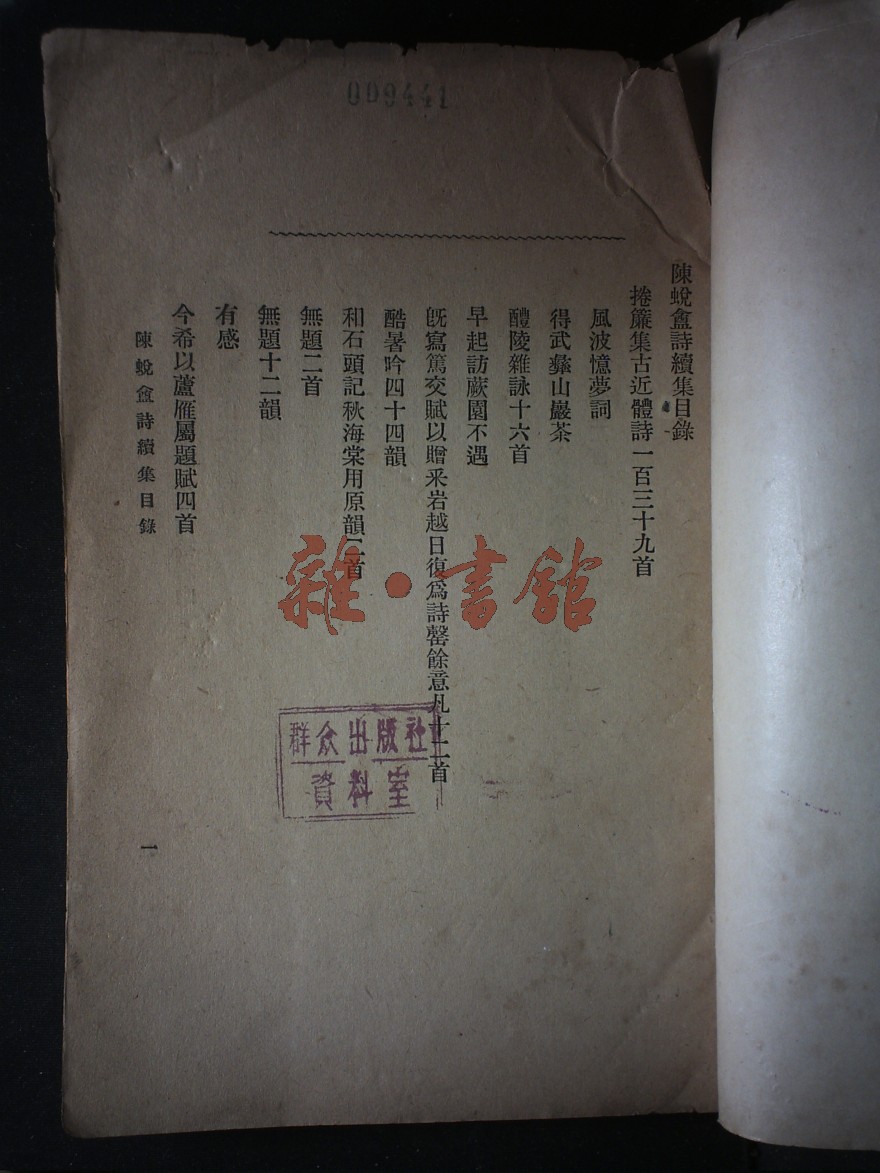 009441
陳蛻盦詩續集目錄
捲簾集古近體詩一百三十九首
風波憶夢詞
得武彝山巖茶
醴陵雜詠十六首
早起訪蕨園不遇
旣寫篤交賦以贈釆岩越日復爲詩罄餘意凡十二首
酷暑吟四十四韻
和石頭記秋海棠用原韻二首
無題二首
無題十二韻
有感
今希以蘆雁屬題賦四首
陳蛻盦詩續集目錄
一
雜·書館
群众出版社
資料室